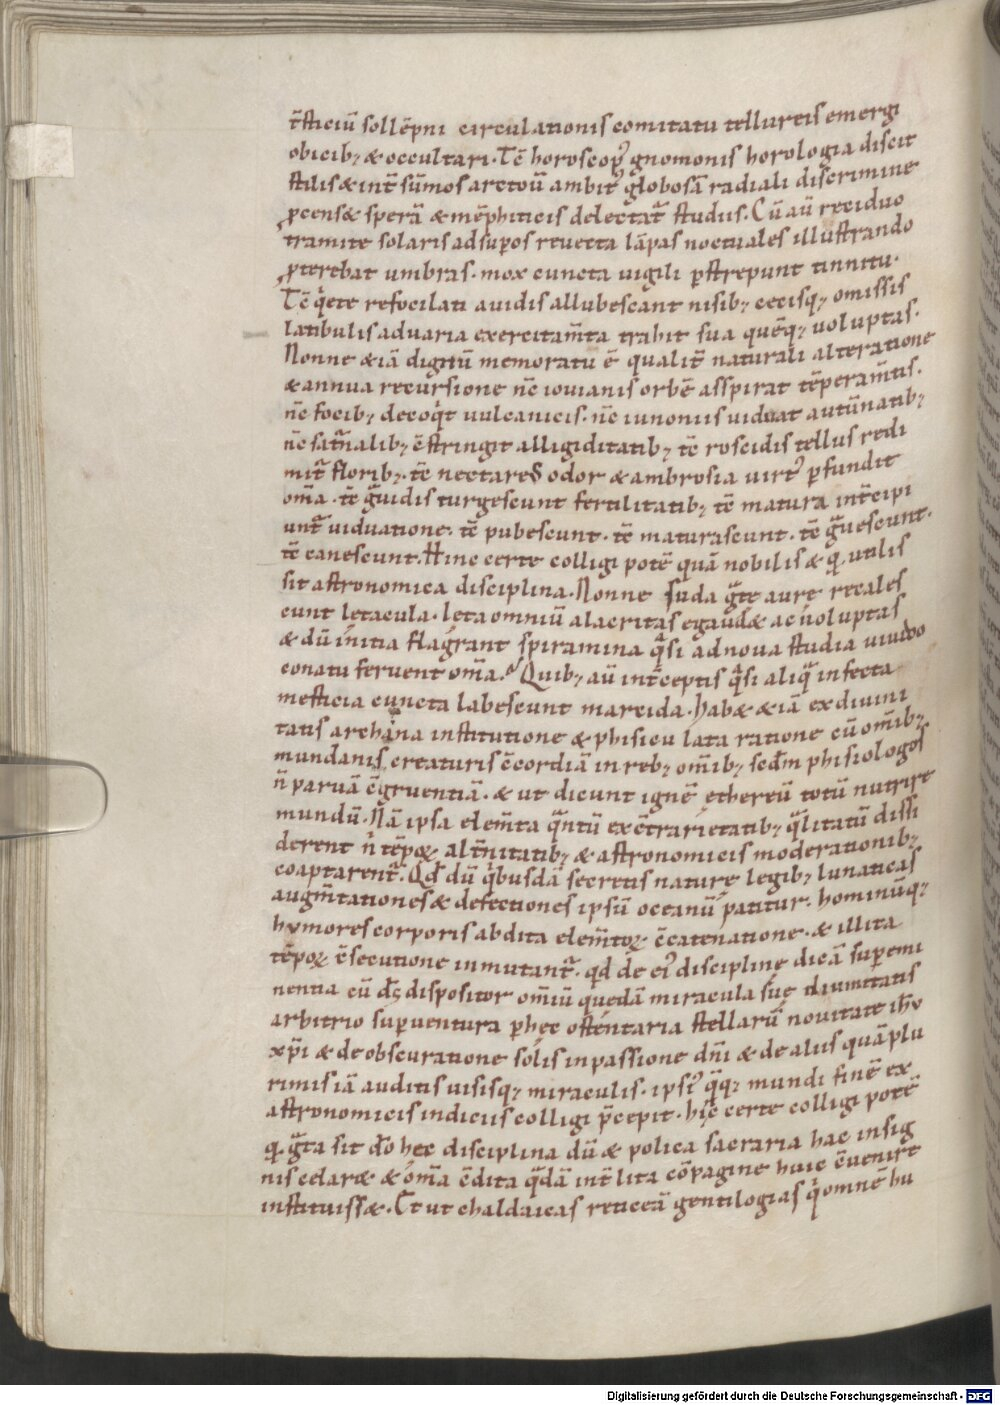 t̄sticiū sollēpni circulationis comitatu telluris emergi
obicib; & occultari. Tc̄ horoscop⁹ gnomonis horologia discit
stilis & int̄ sūmos arctoū ambit⁹ globosā radiali discrimine
ꝑcens& sperā & mēphiticis delectat᷑ studiis. Cū aū reciduo
tramite solaris adsuꝑos revecta lāpas noctuales illustrando
ꝓterebat umbras. mox cuncta vigili ꝑstrepunt tinnitu.
Tc̄ qͥete refocilati avidis allubescant nisib; cecisq; omissis
latibulis advaria exercitam̄ta trahit sua quēq; voluptas.
Nonne & iā dignū memoratu ē qualit̄ naturali alteratione
& annua recursione nc̄ iovianis orbē asspirat tēperam̄tis.
nc̄ focib; decoqͥt vulcanicis. nc̄ iunoniis viduat autūnatib;
nc̄ satn̄alib; c̄stringit alligiditatib; tc̄ roscidis tellus redi
mit᷑ florib;. tc̄ nectareus odor & ambrosia virt⁹ ꝑfundit
om̄a. tc̄ gͣvidis turgescunt fertilitatib; tc̄ matura int̄cipi
unt᷑ viduatione. tc̄ pubescunt. tc̄ maturascunt. tc̄ gͣvescunt.
tc̄ canescunt. Hinc certe colligi potē quā nobilis & qͣ utilis
sit astronomica disciplina. Nonne suda gͣte aure recales
cunt lętacula. lęta omniū alacritas egaud& ac voluptas
& dū initia flagrant spiramina qͣsi ad nova studia vivido
conatu fervent om̄a. Quib; aū int̄ceptis qͣsi aliqͣ infecta
mesticia cuncta labescunt marcida. hab& & iā ex divini
tatis archana institutione & phisicu lata ratione cū om̄ib;
mundanis creaturis c̄cordiā in reb; om̄ib; sedm̄ phisiologos
n̄ parvā c̄gruentiā. & ut dicunt ignē ęthereū totū nutrire
mundū. Nā ipsa elem̄ta qͣntū ex c̄trarietatib; qͣlitatū dissi
derent n̄ tēpoꝝ alt̄nitatib; & astronomicis moderationib;
coaptarent᷑. Qđ dū qͥbusdā secretis naturę legib; lunaticas
augm̄tationes & defectiones ipsū oceanū patitur. hominūq;
hvmores corporis abdita elem̄toꝝ c̄catenatione. & illita
tēpoꝝ c̄secutione inmutant᷑. qđ de ei⁹ disciplinę dicā suꝑemi
nentia cū dꝰ dispositor om̄iū quedā miracula suę divinitatis
arbitrio suꝑventura ꝑ hęc ostentaria stellarū novitate ihv̄
xp̄i & de obscuratione solis in passione dn̄i & de aliis quā plu
rimis iā auditis visisq; miraculis. ipsi⁹ qͦq; mundi finē ex
astronomicis indiciis colligi p̄cepit. hic̄ certe colligi potē
qͣ gͣta sit đo hęc disciplina dū & polica sacraria hac insig
nis celar& & om̄a c̄dita qͣdā int̄lita cōpagine huic c̄venire
instituiss&. Et ut chaldaicas reticeā gentilogias qͥ omnē hu